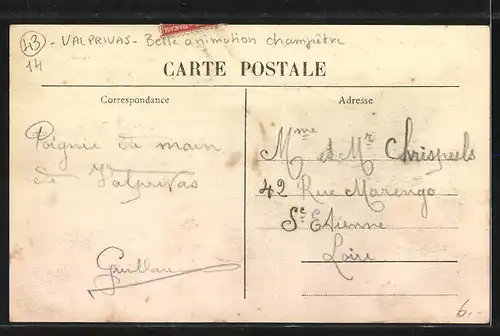 43 - VALPRIVAS - Belle animation champêtre
14
CARTE POSTALE
Correspondance
Adresse
Poignée de main
de Valprivas
Mme et Mr Chrispeels
42 Rue Marengo
St Etienne
Loire
6.-